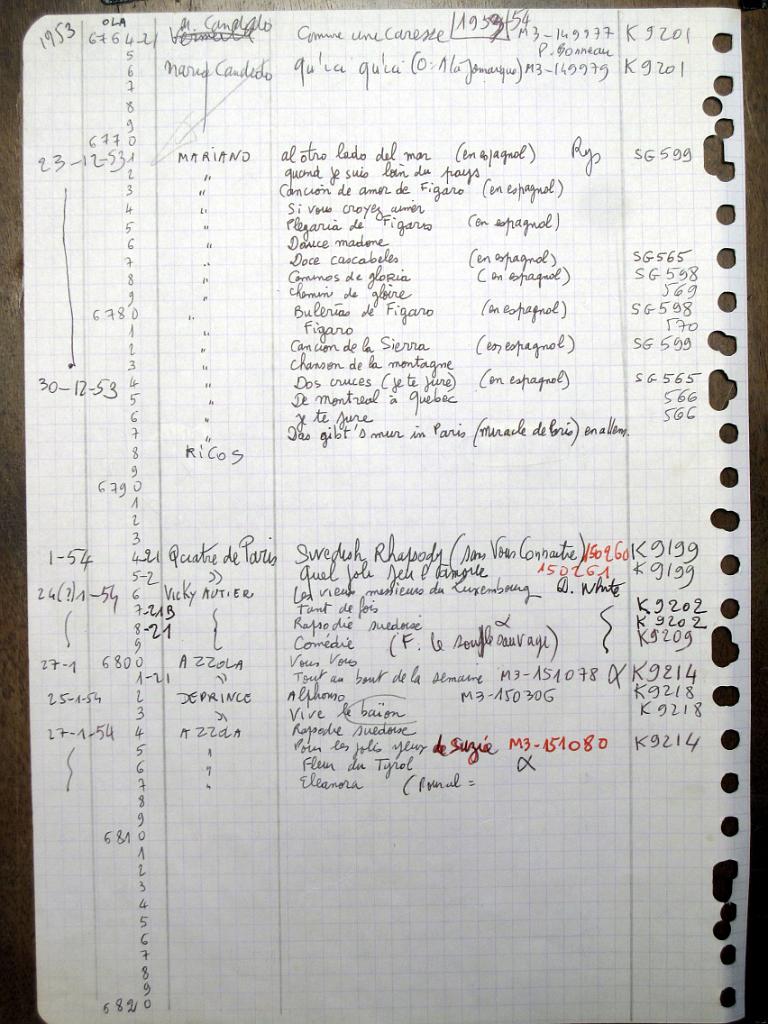 1953 OLA M. Candido 1953/54
6764-21 Comme une caresse M3-149977 K9201
5 P. Bonneau
6 Maria Candido qu'ici qu'ici (O: A la Jamaïque) M3-149979 K9201
7
8
9
6770
23-12-53 1 MARIANO al otro lado del mar (en espagnol) Rys SG 599
2 " quand je suis loin du pays
3 " Canción de amor de Figaro (en espagnol)
4 " Si vous croyez aimer
5 " Plegaria de Figaro (en espagnol)
6 " Douce madone
7 " Doce cascabeles (en espagnol) SG565
8 " Caminos de gloria (en espagnol) SG598
9 " Chemin de gloire 569
6780 " Bulerias de Figaro (en espagnol) SG598
1 " Figaro 570
2 " Cancion de la Sierra (en espagnol) SG 599
3 " Chanson de la montagne
30-12-53 4 " Dos cruces (je te jure) (en espagnol) SG565
5 " De montreal à Quebec 566
6 " Je te jure 566
7 " Das gibt's nur in Paris (miracle de Paris) en allem.
8 RICOS
9
6790
1
2
3
1-54 4-21 Quatre de Paris Swedish Rhapsody (sans Vous Connaitre) 150260 K9199
5-2 " Quel joli jeu l'amour 150261 K9199
24(?)1-54 6 VICKY AUTIER Les vieux messieurs du Luxembourg D. White
7-21B Tant de fois K9202
8-21 Rapsodie suedoise α K9202
9 Comédie (F. le souffle sauvage) K9209
27-1 6800 AZZOLA Vous Vous
1-21 " Tout au bout de la semaine M3-151078 α K9214
25-1-54 2 DEPRINCE Alphonso M3-150306 K9218
3 " Vive le baïon K9218
27-1-54 4 AZZOLA Rapsodie suedoise
5 " Pour les jolis yeux de Suzie M3-151080 K9214
6 " Fleur du Tyrol α
7 " Eleanora (Pourcel =
8
9
6810
1
2
3
4
5
6
7
8
9
6820